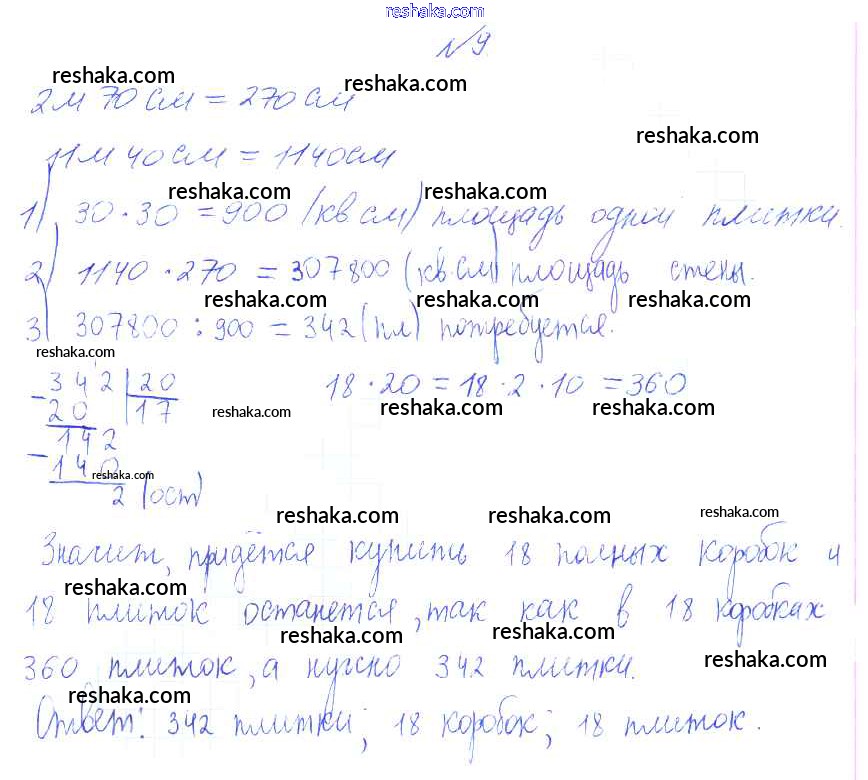 reshaka.com
№9.
reshaka.com
reshaka.com
2м 70 см = 270 см
reshaka.com
11м 40см = 1140см
reshaka.com reshaka.com
1) 30 · 30 = 900 (кв см) площадь одной плитки.
2) 1140 · 270 = 307800 (кв.см) площадь стены.
reshaka.com reshaka.com reshaka.com
3) 307800 : 900 = 342 (пл) потребуется.
reshaka.com
- 342 | 20 18 · 20 = 18 · 2 · 10 = 360
20 | 17 reshaka.com reshaka.com reshaka.com
- 142
140 reshaka.com
2 (ост)
reshaka.com reshaka.com reshaka.com
Значит, придётся купить 18 полных коробок и
reshaka.com
18 плиток останется, так как в 18 коробках
reshaka.com reshaka.com
360 плиток, а нужно 342 плитки.
reshaka.com
reshaka.com
Ответ: 342 плитки; 18 коробок; 18 плиток.